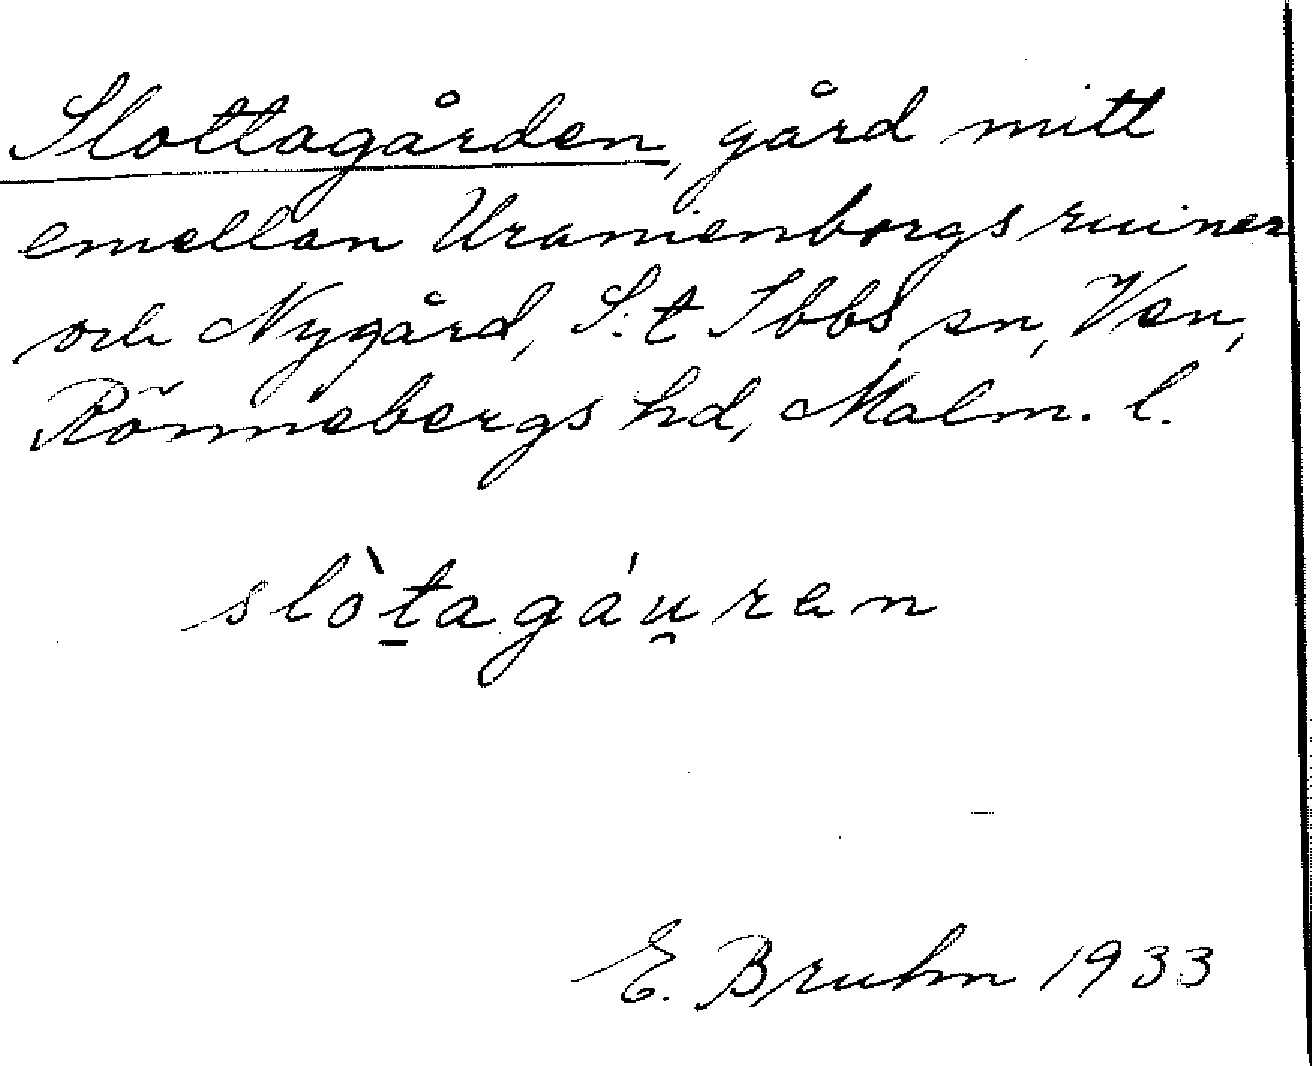 Slottagården, gård mitt
emellan Uranienborgs ruiner
och Nygård, S:t Ibbs sn, Ven,
Rönnebergs hd, Malm. l.
slòt̠agáu̯ren
E. Bruhn 1933